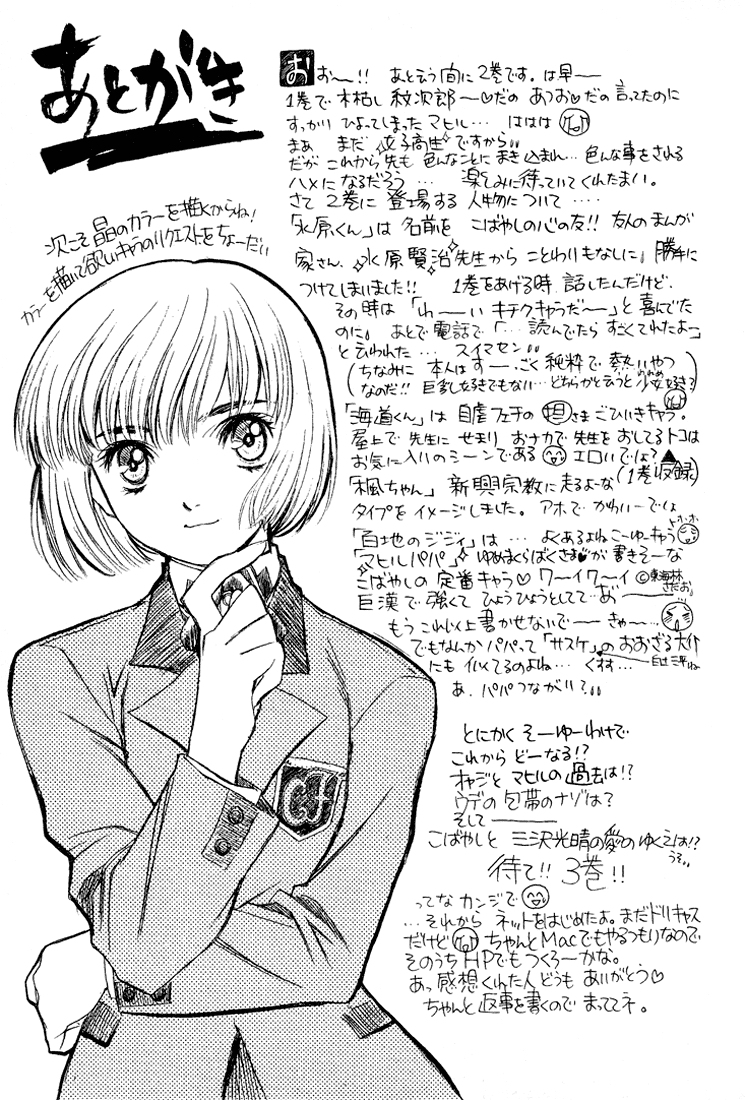 あとがき
おお〜!! あと云う間に2巻です。は早ー
1巻で木枯し紋次郎〜♡だの あつお♡だの 言ってたのに
すっかり ひよってしまった マヒル… ははは
まぁ まだ 女子高生 ですから
だが これから先も 色んなことに まき込まれ… 色んな事をされる
ハメになるだろう… 楽しみに待っていてくれたまい。
さて 2巻に 登場する 人物について‥‥
「水原くん」は 名前を こばやしの心の友!! 友人のまんが
家さん、水原賢治先生から ことわりもなしに 勝手に
つけてしまいました!! 1巻をあげる時 話したんだけど、
その時は「わーーい キチクキャラだ〜」と喜んでた
のに。 あとで電話で「…読んでたら すごくてれたよー」
と云われた… スイマセン
(ちなみに 本人は すー‥ごく 純粋で 熱いやつ
なのだ!! 巨乳好きでもない…どちらかと云うと 少女好き?)
「海道くん」は 自虐フェチの 担さま ごひいきキャラ。
屋上で 先生に せまり おナカで先生を おしてるトコは
お気に入りのシーンである エロいでしょ?
(1巻収録)
「楓ちゃん」 新興宗教に走るよーな
タイプをイメージしました。アホで かわいーでしょ
「百地のジジイ」は… よくあるよね こーゆーキャラ
トホホ
「マヒルパパ」 ゆめまくらばくさま♥が 書きそーな
こばやしの 定番キャラ♡ ワ〜イワ〜イ ©東海林さだお
巨漢で 強くて ひょうひょうとしてて‥お〜
もう これ以上 書かせないで〜 きゃ〜…
でもなんか パパって「サスケ」の おおざる大介
にも 似てるのよね… くすす… 自己評ね
あ、パパつながり?
次こそ 晶のカラーを描くからね!
カラーを描いて欲しいキャラのリクエストをちょーだい
とにかく そーゆーわけで
これから どーなる!?
オヤジと マヒルの 過去は!?
ウデの 包帯のナゾは?
そして ────
こばやしと 三沢光晴の愛の ゆくえは!?
うそ
待て!! 3巻!!
ってな カンジで
…それから ネットをはじめたよ。まだドリキャス
だけど ちゃんとMacでもやるつもりなので
そのうち HPでもつくろーかな。
あっ 感想くれた人 どうも ありがとう♡
ちゃんと 返事を書くので まっててネ。